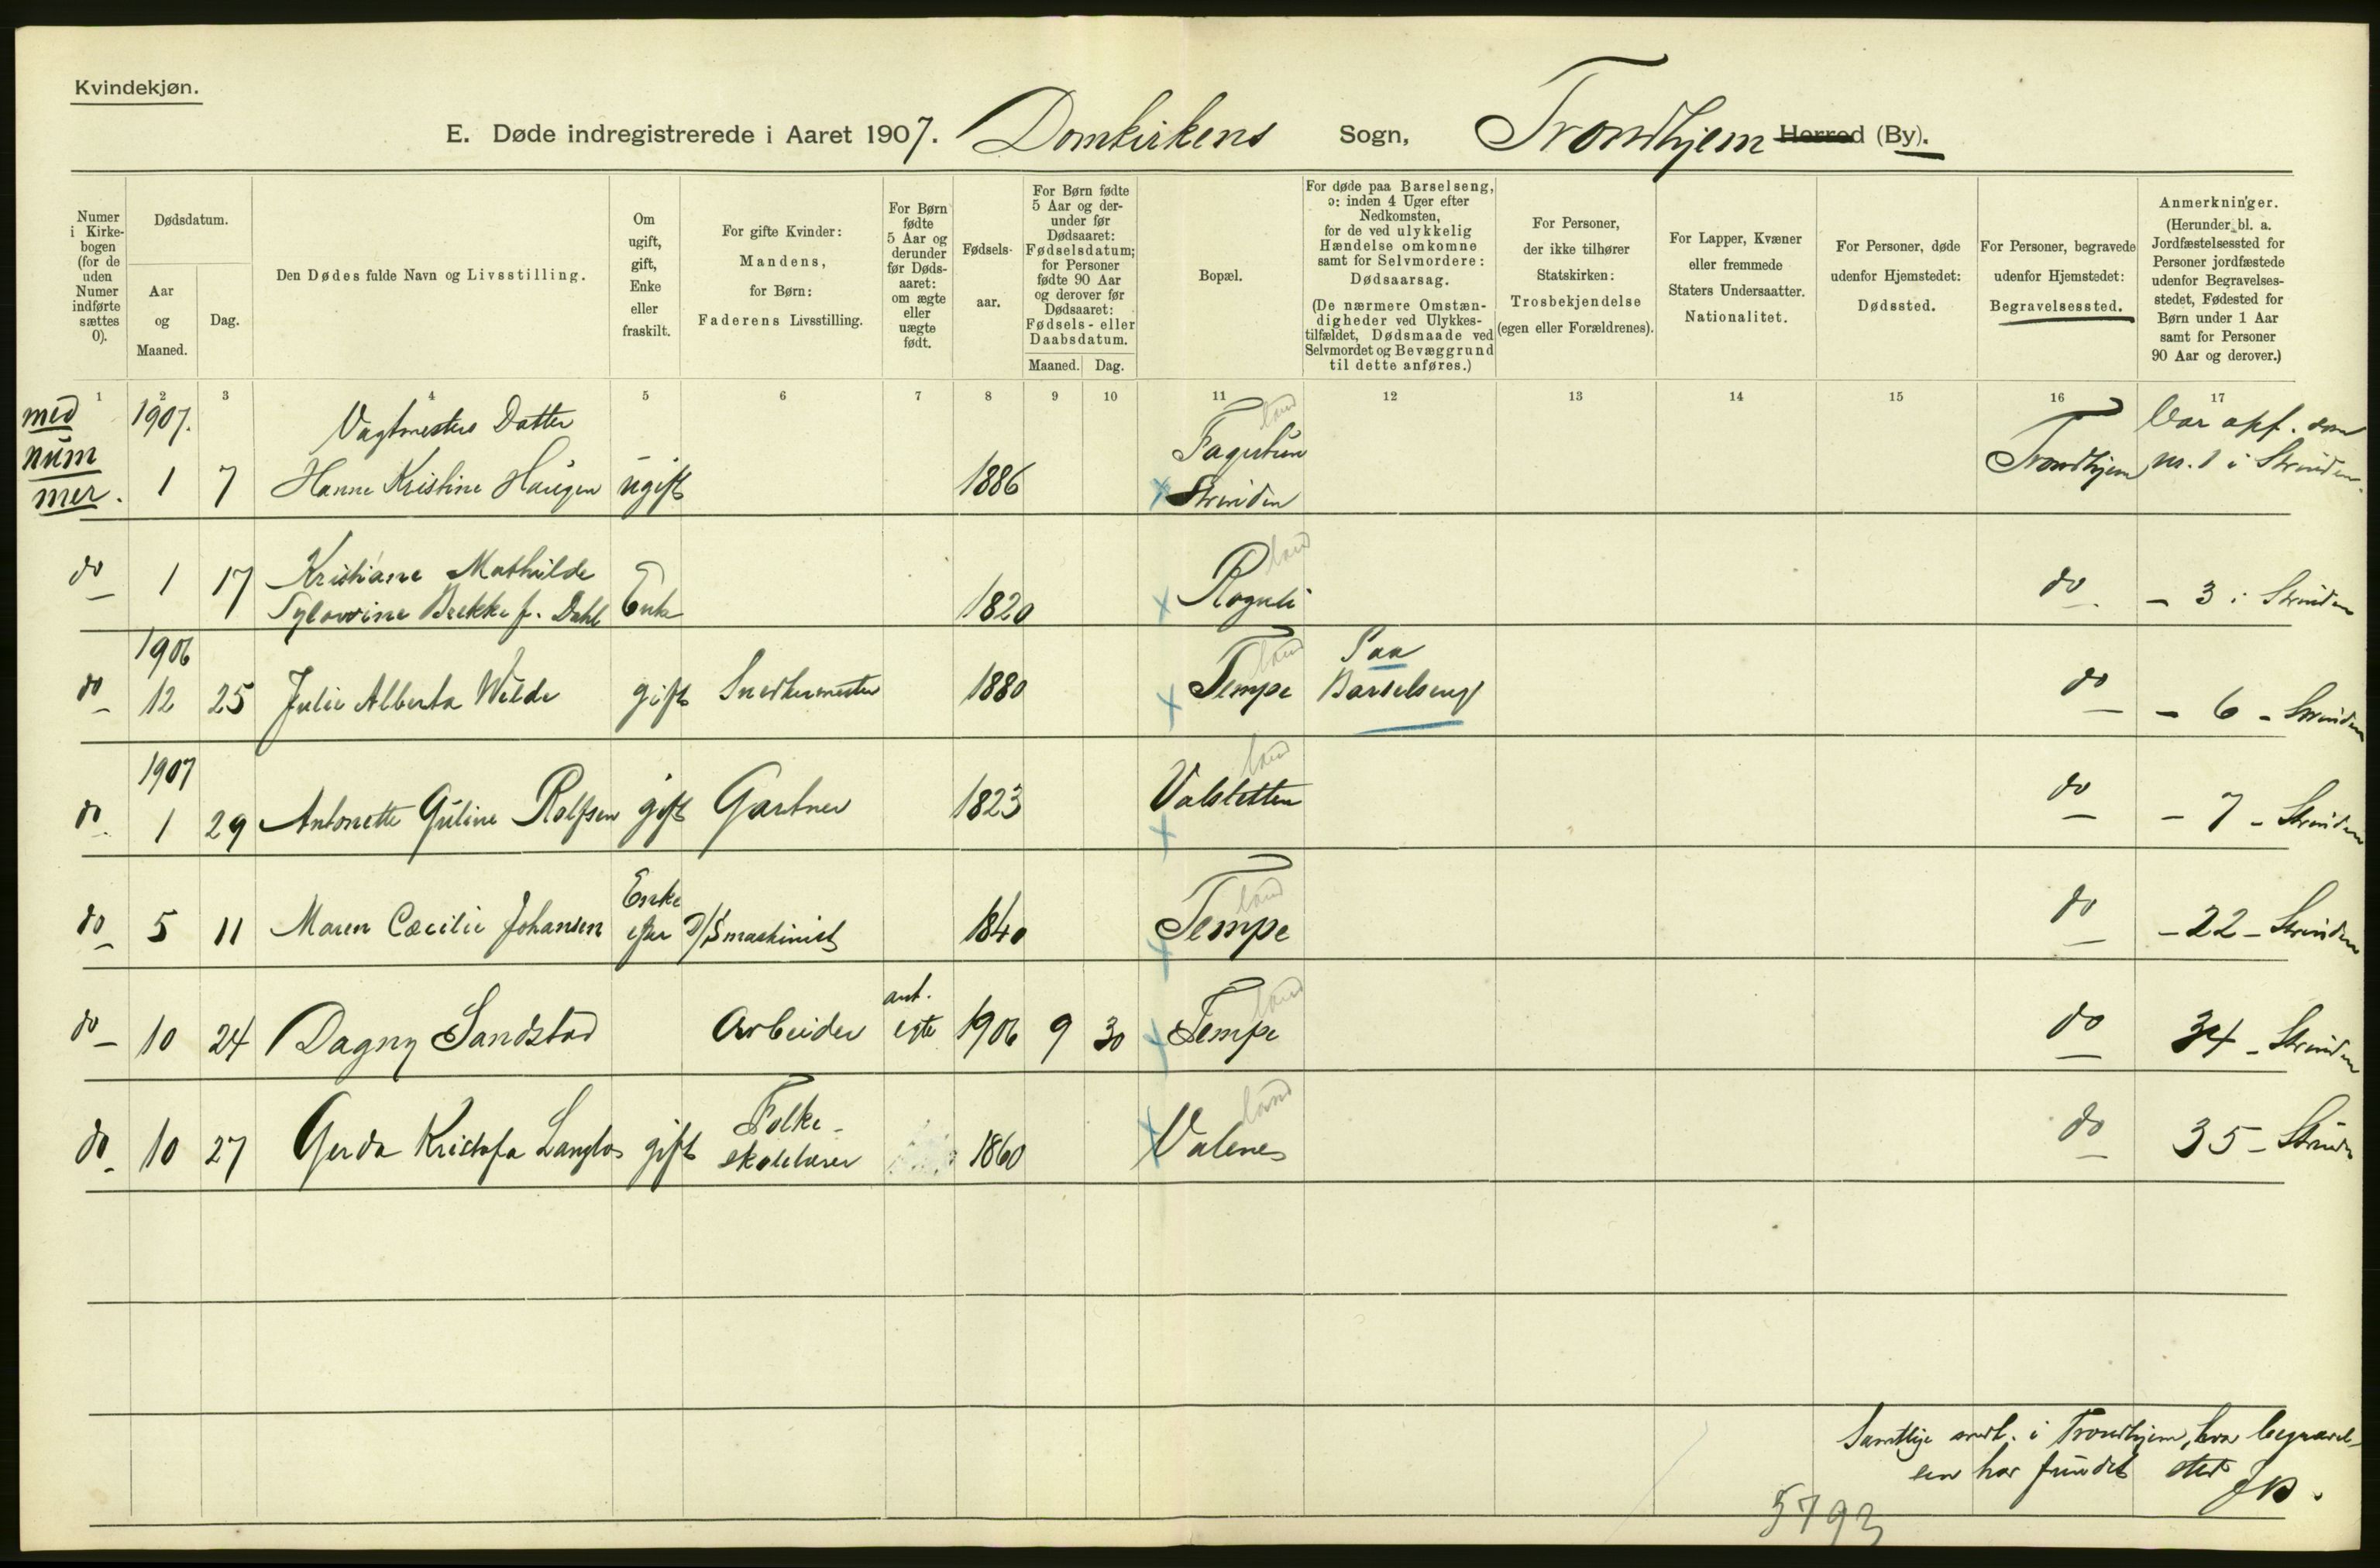 Kvindekjøn.
E. Døde indregistrerede i Aaret 1907. Domkirkens Sogn, Trondhjem Herred (By).
Numer i Kirkebogen (for de uden Numer indførte sættes 0).
Dødsdatum.
Aar og Maaned.
Dag.
Den Dødes fulde Navn og Livsstilling.
Om ugift, gift, Enke eller fraskilt.
For gifte Kvinder: Mandens, for Børn: Faderens Livsstilling.
For Børn fødte 5 Aar og derunder før Dødsaaret: om ægte eller uægte født.
Fødselsaar.
For Børn fødte 5 Aar og derunder før Dødsaaret: Fødselsdatum; for Personer fødte 90 Aar og derover før Dødsaaret: Fødsels- eller Daabsdatum.
Maaned. Dag.
Bopæl.
For døde paa Barselseng, ɔ: inden 4 Uger efter Nedkomsten, for de ved ulykkelig Hændelse omkomne samt for Selvmordere: Dødsaarsag.
(De nærmere Omstændigheder ved Ulykkestilfældet, Dødsmaade ved Selvmordet og Bevæggrund til dette anføres.)
For Personer, der ikke tilhører Statskirken: Trosbekjendelse (egen eller Forældrenes).
For Lapper, Kvæner eller fremmede Staters Undersaatter. Nationalitet.
For Personer, døde udenfor Hjemstedet: Dødssted.
For Personer, begravede udenfor Hjemstedet: Begravelsessted.
Anmerkninger.
(Herunder bl. a. Jordfæstelsessted for Personer jordfæstede udenfor Begravelsesstedet, Fødested for Børn under 1 Aar samt for Personer 90 Aar og derover.)
1 2 3 4 5 6 7 8 9 10 11 12 13 14 15 16 17
med 1907. Vagtmesters Datter land Var opf. som
num
mer. 1 7 Hanne Kristine Haugen ugift 1886 Strinden Trondhjem nr. 1 i Strinden.
do 1 17 Kristiane Mathilde land
Brekke f. Dahl Enke 1820 do - 3 i Strinden
1906 land Paa
do 12 25 Julie Alberta Wilde gift Snedkermester 1880 Tempe Barselseng do - 6 - Strinden
1907 land
do 1 29 Antonette Guline Rolfsen gift Gartner 1823 do - 7 - Strinden
Enke land
do 5 11 Maren Cæcilie Johansen efter D/S maskinist 1840 Tempe do - 22 - Strinden
land
do 10 24 Dagny Sandstad Arbeider ekte 1906 9 30 Tempe do 34 - Strinden
Folke- land
do 10 27 Gerda Kristofa Langlos gift skolelærer 1860 Valene do 35 - Strinden
Samtlige medt. i Trondhjem, hvor begravel-
sen har fundet sted
5793